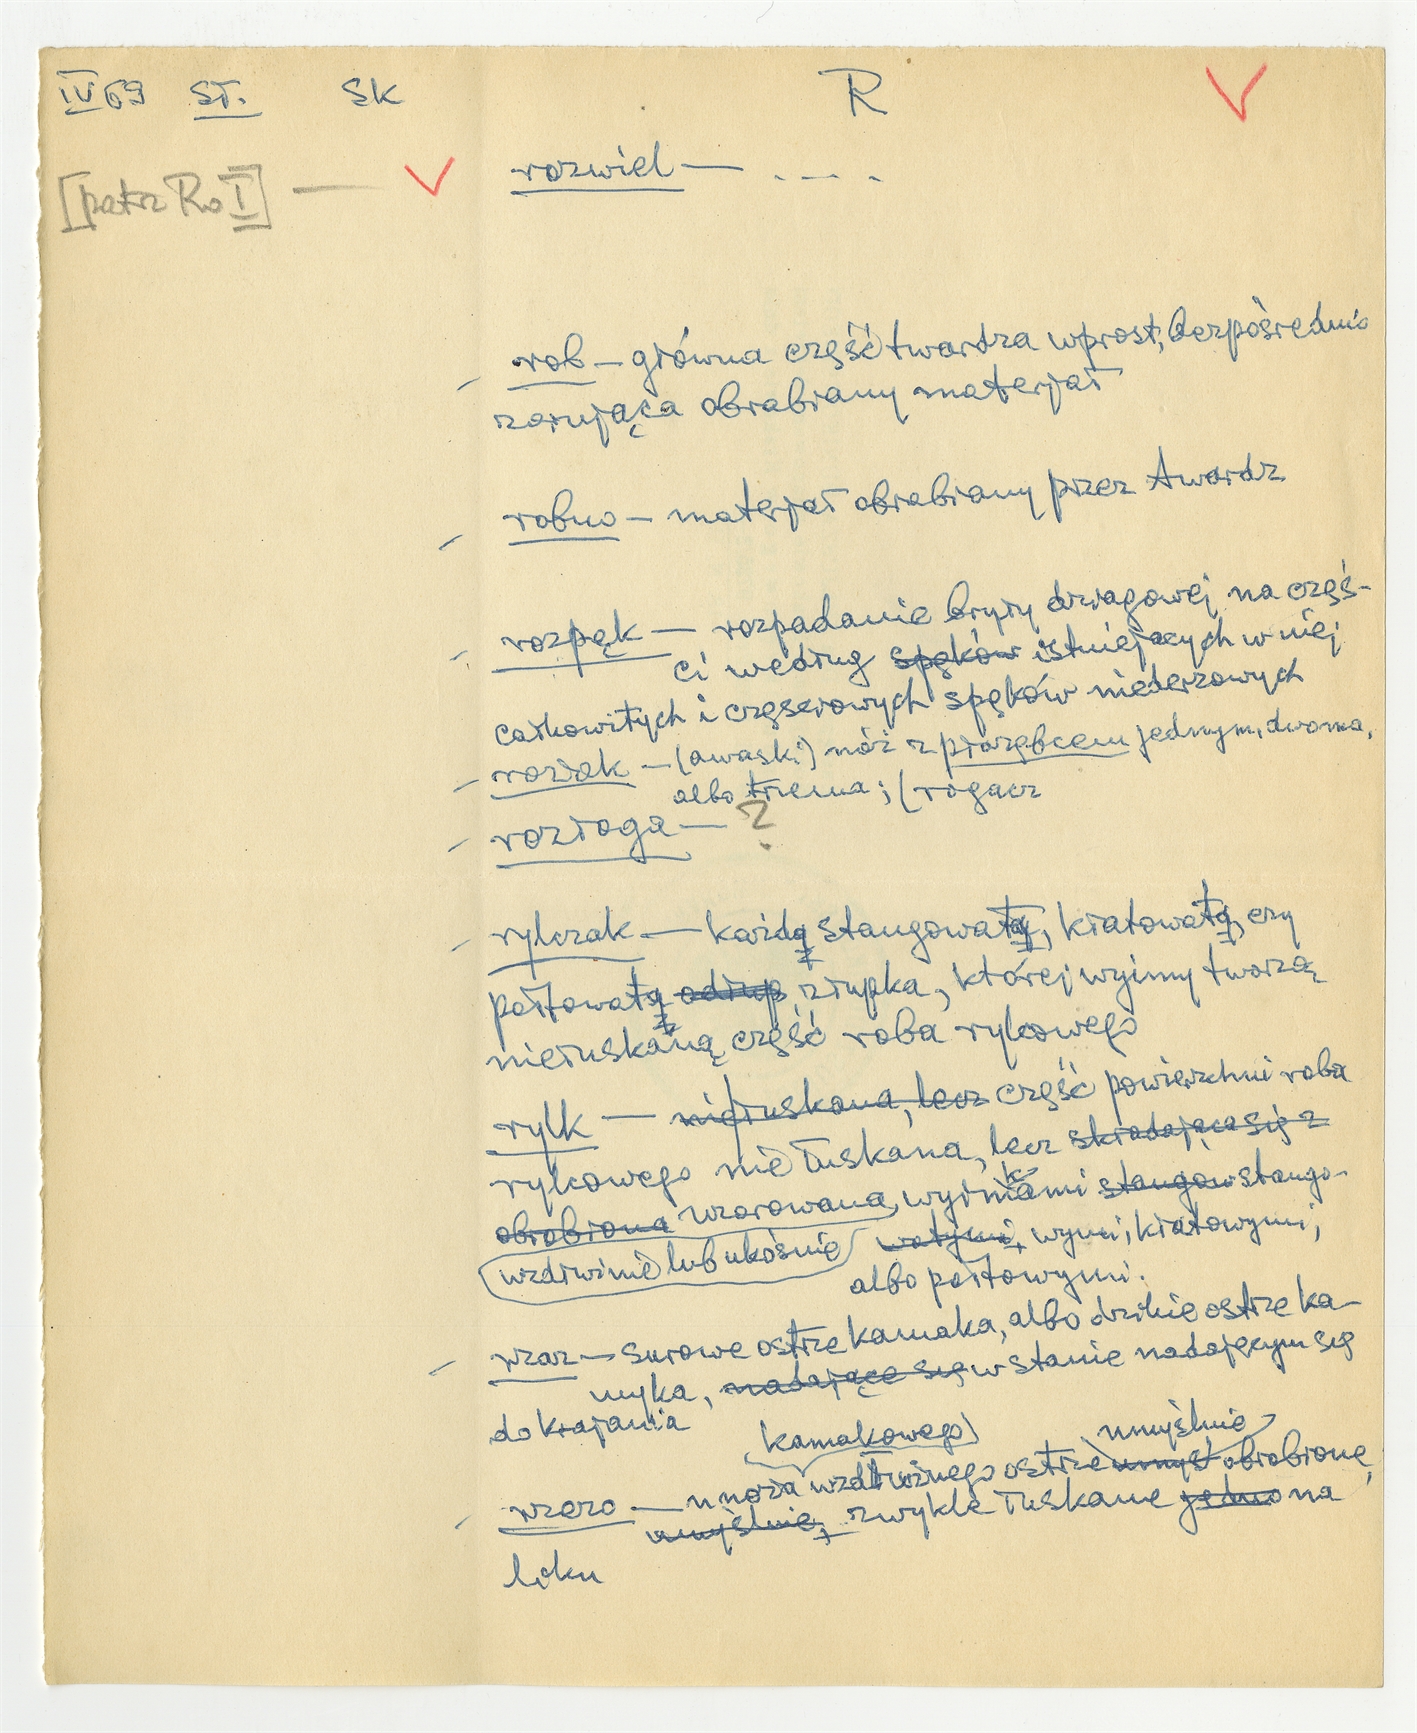 IV 69 ST. SK R V
[patrz Ro I] — V rozwiel — . — — .
rob — główna część twardza wprost, bezpośrednio
zorująca obrabiany materjał
robno — materjał obrabiany przez twardz
rozpęk — rozpadanie bryły dziagowej na częś-
ci według spęków istniejących w niej
całkowitych i częserowych spęków niederzowych
— (awaski) nóż z przębcem jednym, dwoma,
albo trzema; (rogacz
rozłoga — ?
rylczak — każdą stangowatą, kłatowatą, czy
połtowatą odłup złupka, której wyimy tworzą
niełuskaną część roba rylcowego
rylk — niełuskana, lecz część powierzchni roba
rylcowego nie łuskana, lecz składająca się z
obrobiona wzorowana, wyimkami stangow stango-
wzdłużnie lub ukośnie watymi, wymi, kłatowymi,
albo połtowymi.
rzaz — surowe ostrze kamaka, albo dzikie ostrze ka-
myka, nadające się w stanie nadającym się
do krajania
kamakowego umyślnie
rzezo — u noża wzdłużnego ostrze umyśl obrobione
umyślnie, zwykle łuskane jedno na
boku